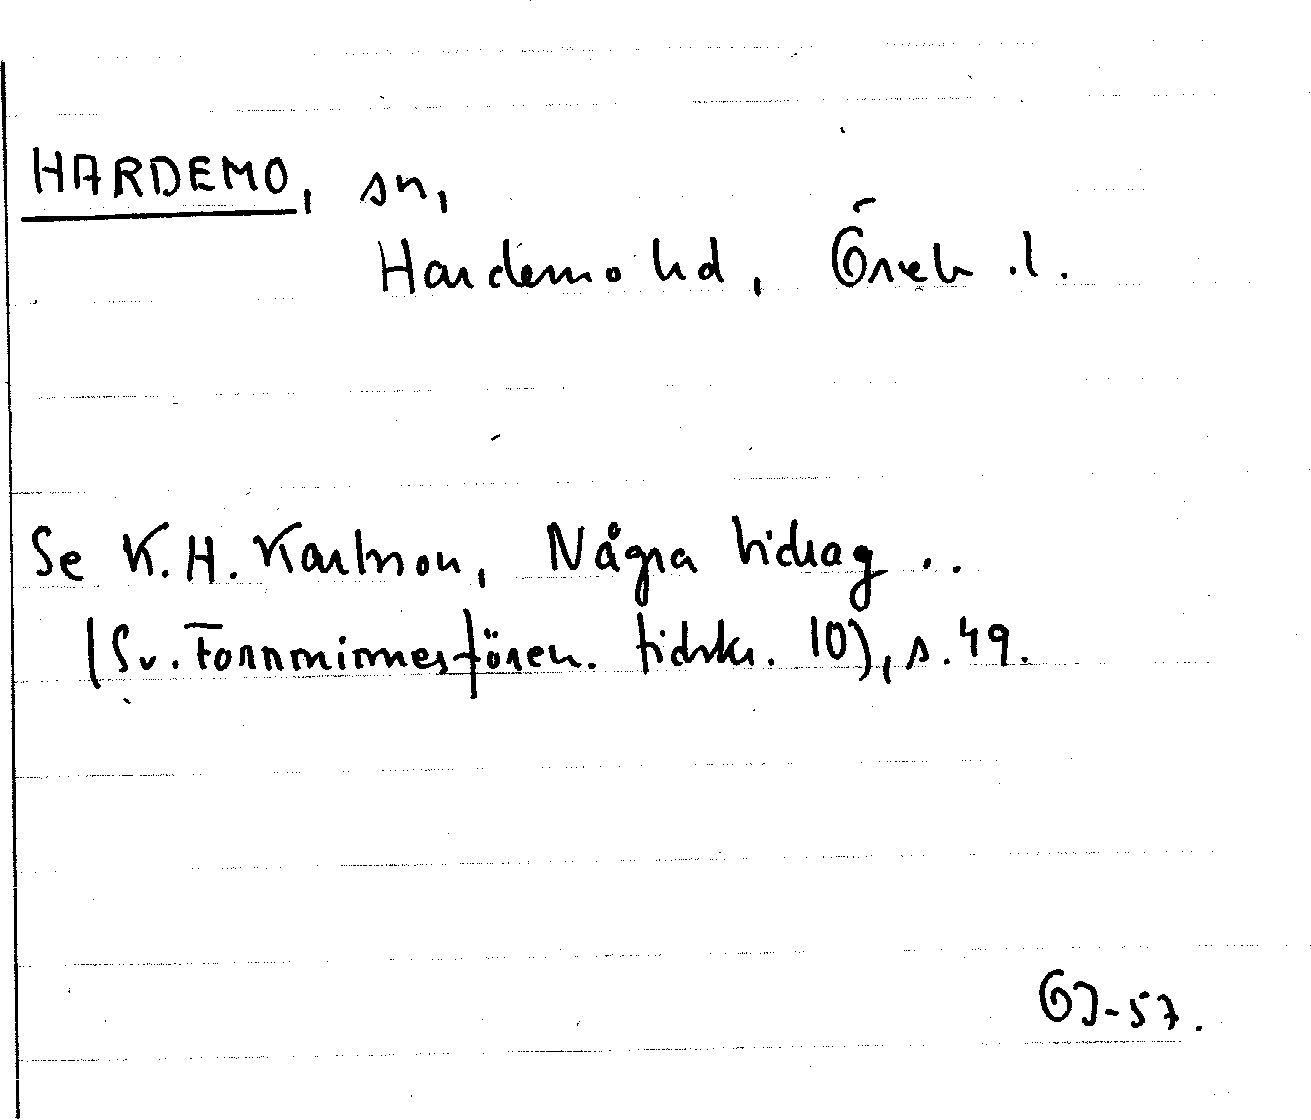 HARDEMO, sn,
Hardemo hd, Öreb. l.
Se K. H. Karlsson, Några bidrag ..
(Sv. Fornminnesfören. tidskr. 10), s. 49.
ÖJ-57.